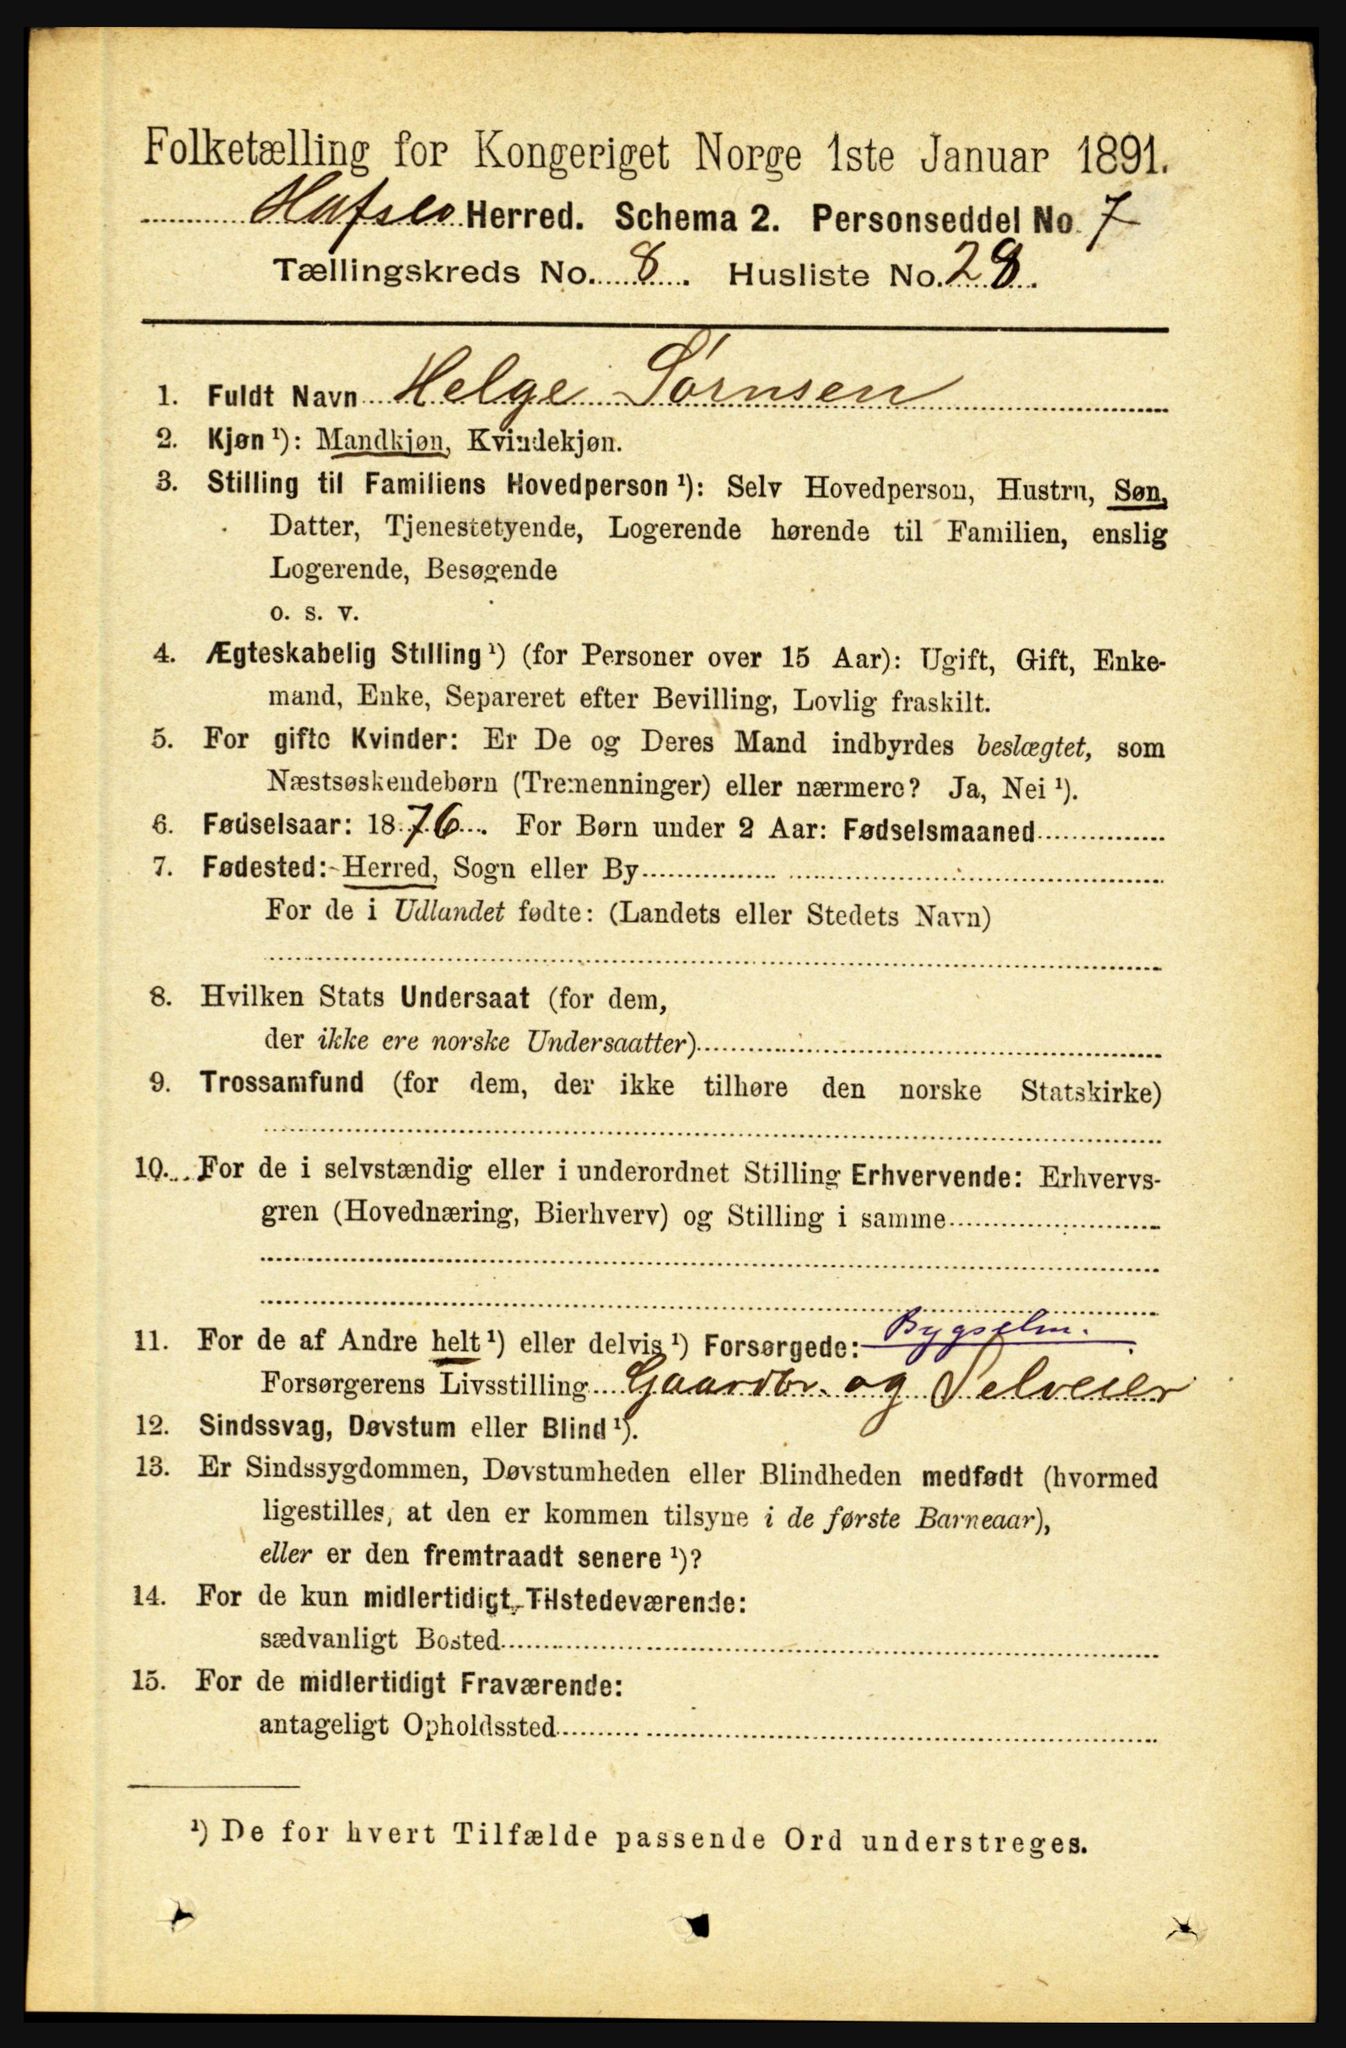 Folketælling for Kongeriget Norge 1ste Januar 1891.
Hafslo Herred. Schema 2. Personseddel No 7
Tællingskreds No. 8. Husliste No. 28.
1. Fuldt Navn Helge Sørnsen
2. Kjøn ¹): Mandkjøn, Kvindekjøn.
3. Stilling til Familiens Hovedperson ¹): Selv Hovedperson, Hustru, Søn,
Datter, Tjenestetyende, Logerende hørende til Familien, enslig
Logerende, Besøgende
o. s. v.
4. Ægteskabelig Stilling ¹) (for Personer over 15 Aar): Ugift, Gift, Enke-
mand, Enke, Separeret efter Bevilling, Lovlig fraskilt.
5. For gifte Kvinder: Er De og Deres Mand indbyrdes beslægtet, som
Næstsøskendebørn (Tremenninger) eller nærmere? Ja, Nei ¹).
6. Fødselsaar: 1876. For Børn under 2 Aar: Fødselsmaaned
7. Fødested: Herred, Sogn eller By
For de i Udlandet fødte: (Landets eller Stedets Navn)
8. Hvilken Stats Undersaat (for dem,
der ikke ere norske Undersaatter)
9. Trossamfund (for dem, der ikke tilhøre den norske Statskirke)
10. For de i selvstændig eller i underordnet Stilling Erhvervende: Erhvervs-
gren (Hovednæring, Bierhverv) og Stilling i samme
11. For de af Andre helt ¹) eller delvis ¹) Forsørgede: Bygselm.
Forsørgerens Livsstilling Gaardbr. og Selveier
12. Sindssvag, Døvstum eller Blind ¹).
13. Er Sindssygdommen, Døvstumheden eller Blindheden medfødt (hvormed
ligestilles, at den er kommen tilsyne i de første Barneaar),
eller er den fremtraadt senere ¹)?
14. For de kun midlertidigt Tilstedeværende:
sædvanligt Bosted
15. For de midlertidigt Fraværende:
antageligt Opholdssted
¹) De for hvert Tilfælde passende Ord understreges.